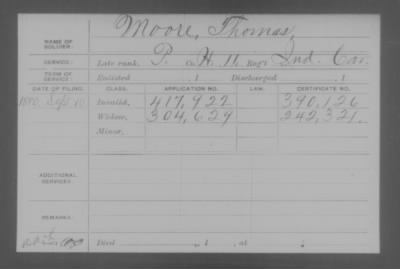 Moore, Thomas,
NAME OF SOLDIER:
SERVICE: Late rank, P. Co. H, 11 Reg't Ind. Cav.
TERM OF SERVICE: Enlisted , 1 Discharged , 1
DATE OF FILING. CLASS. APPLICATION NO. LAW. CERTIFICATE NO.
1880, Sept 10 Invalid, 417,922 390,126
Widow, 304,629 242,321
Minor,
ADDITIONAL SERVICES:
REMARKS:
Died , 1 , at